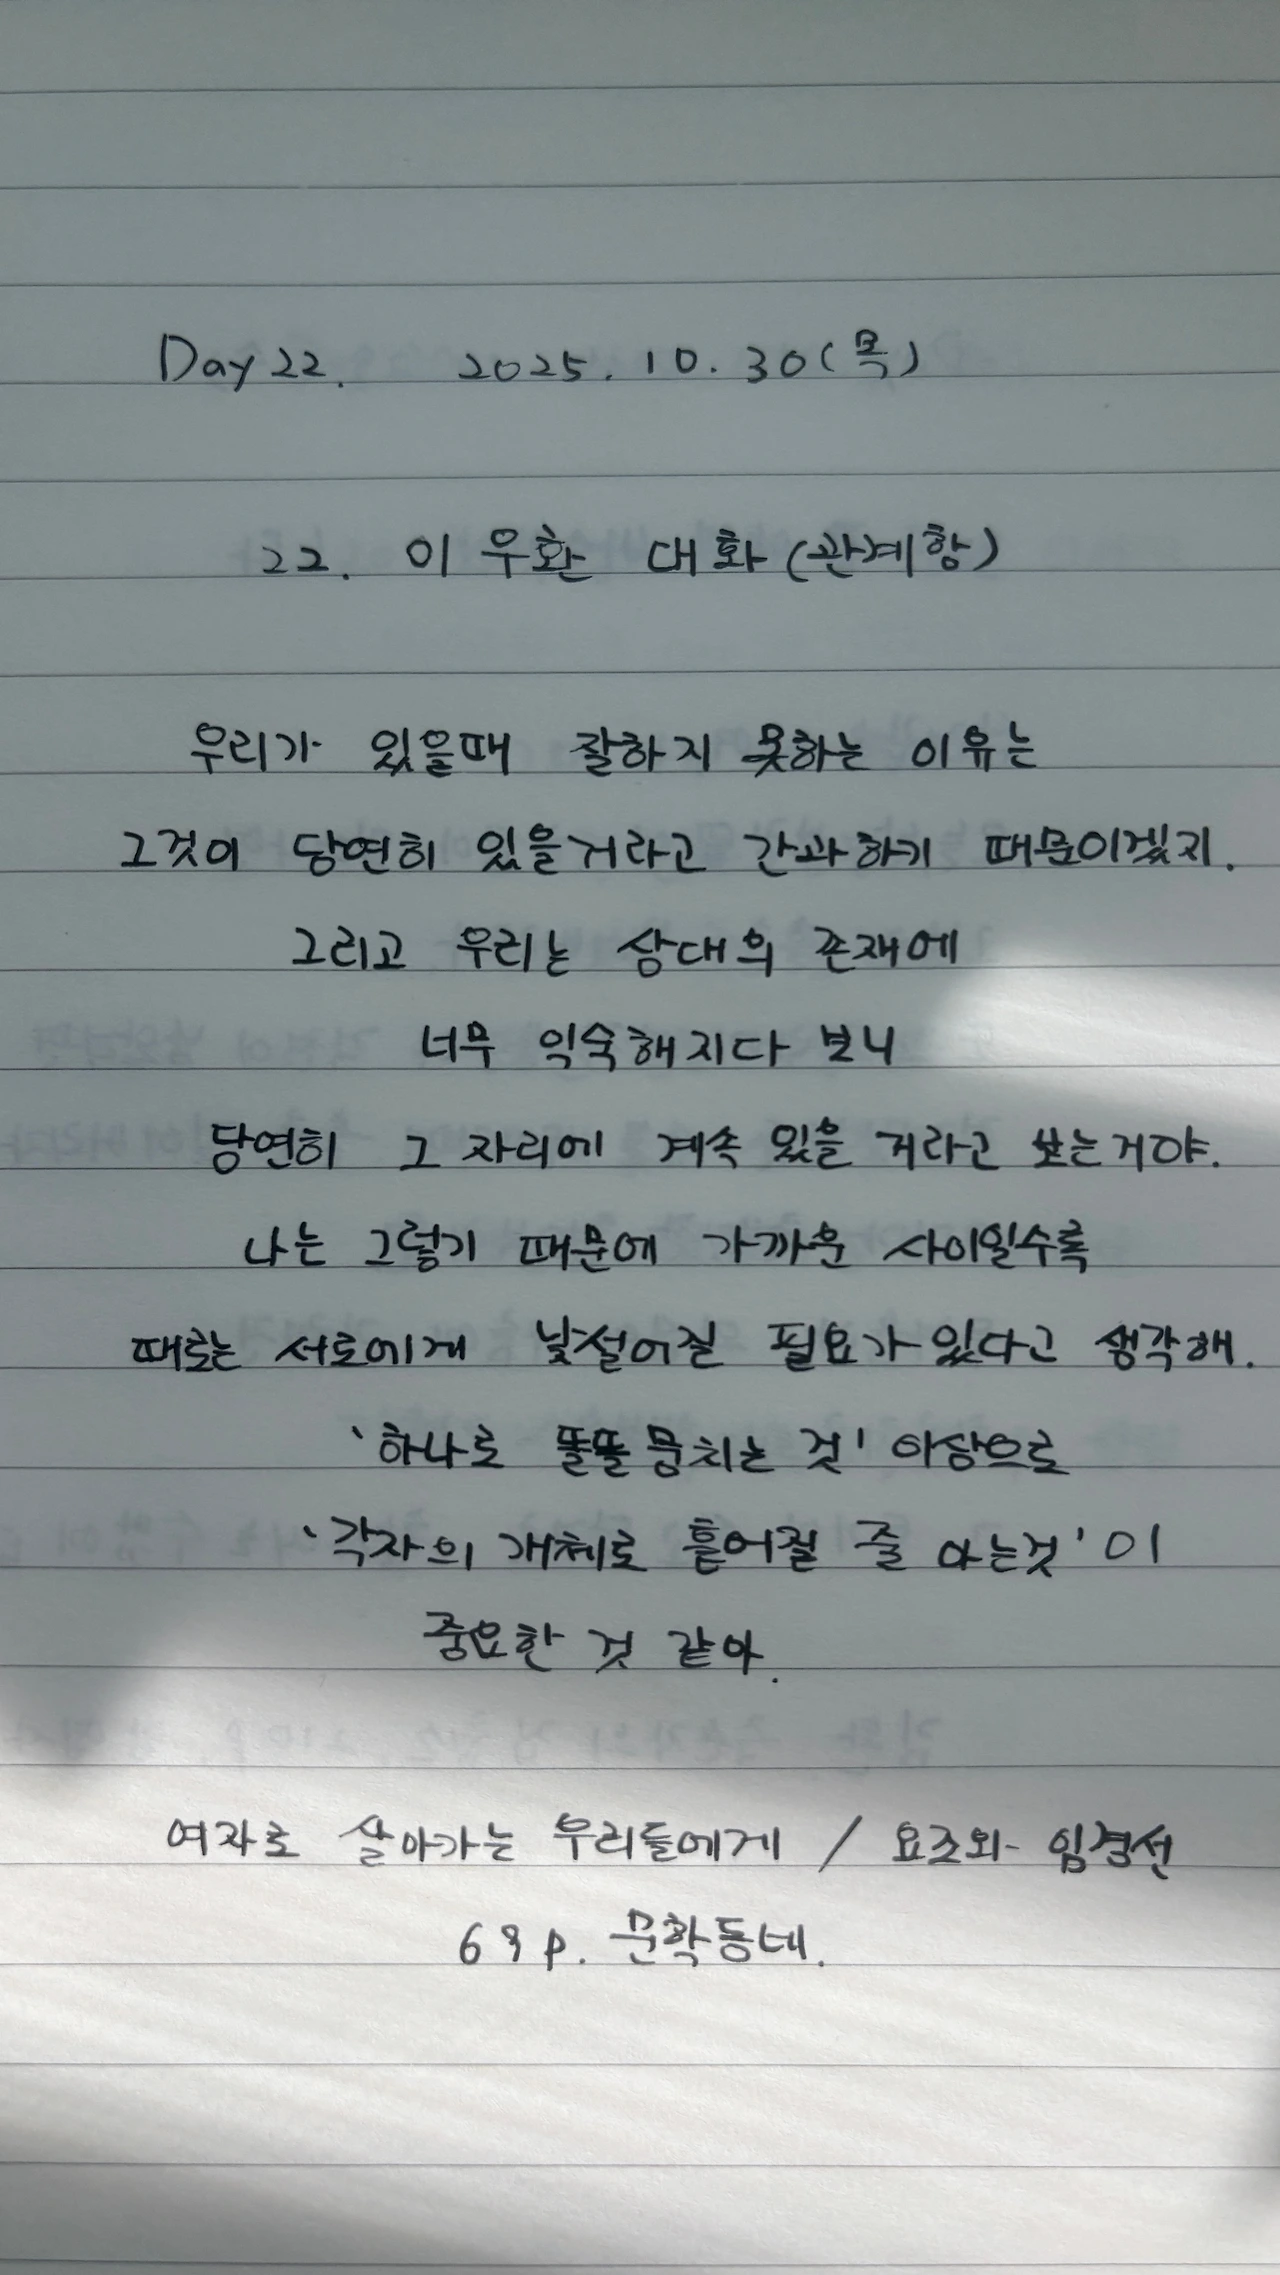 Day 22. 2025. 10. 30 (목)
22. 이우환 대화 (관계항)
우리가 있을때 잘하지 못하는 이유는
그것이 당연히 있을거라고 간과하기 때문이겠지.
그리고 우리는 상대의 존재에
너무 익숙해지다 보니
당연히 그 자리에 계속 있을 거라고 보는거야.
나는 그렇기 때문에 가까운 사이일수록
때로는 서로에게 낯설어질 필요가 있다고 생각해.
'하나로 똘똘뭉치는 것' 이상으로
'각자의 개체로 흩어질 줄 아는것' 이
중요한 것 같아.
여자로 살아가는 우리들에게 / 요조와 임경선
69p. 문학동네.